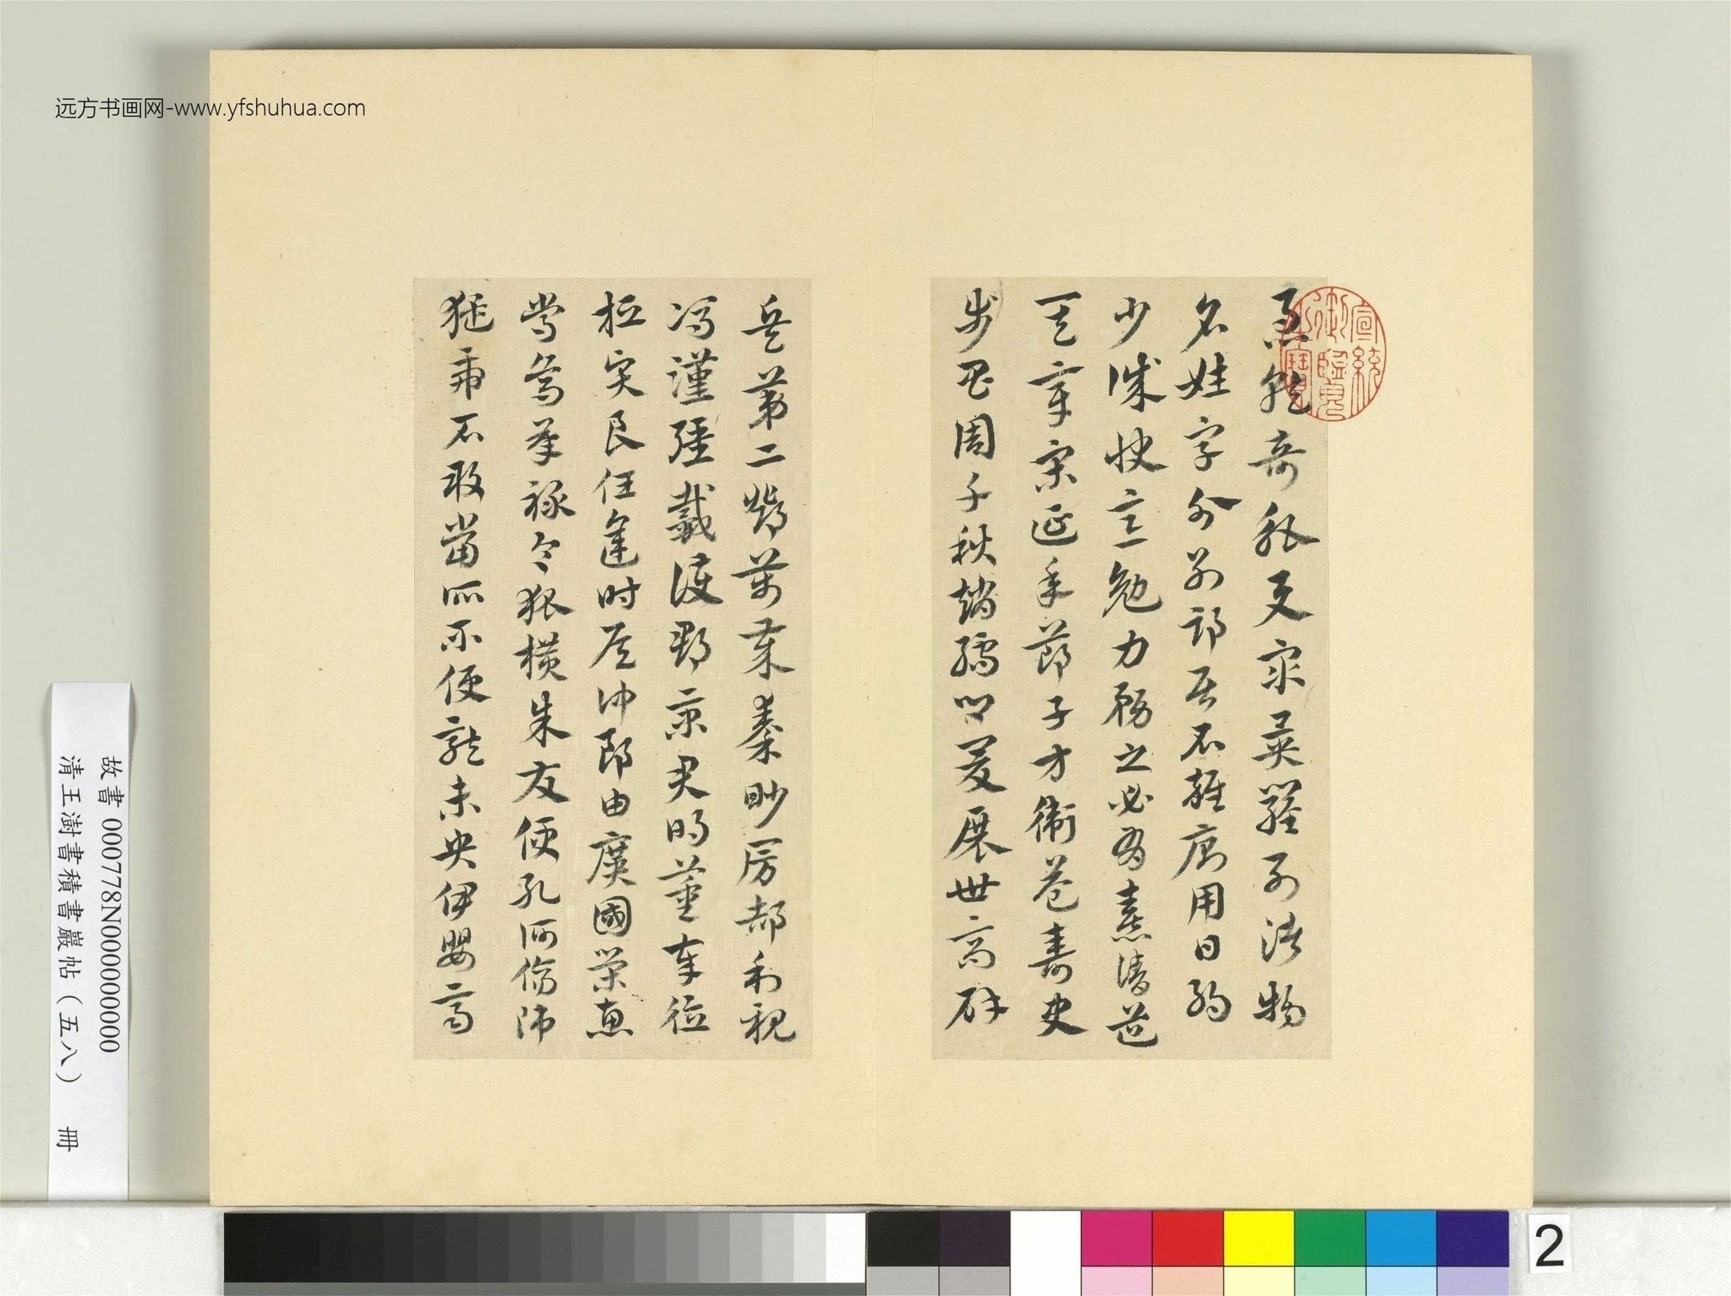 远方书画网-www.yfshuhua.com
急就奇觚與眾異羅列諸物
名姓字分別部居不雜廁用日約
少誠快意勉力務之必有憙請道
其章宋延年鄭子方衛益壽史
步昌周千秋趙孺卿爰展世高辟
兵第二鄧萬歲秦眇房郝利親
馮漢彊戴護郡景君明董奉德
桓賢良任逢時侯仲郎由廣國榮惠
常烏承祿令狐橫朱交便孔何傷師
猛虎石敢當所不侵龍未央伊嬰齊
宣統
御覽
之寶
故書 000778N000000000
清王澍書積書巖帖(五八) 冊
2